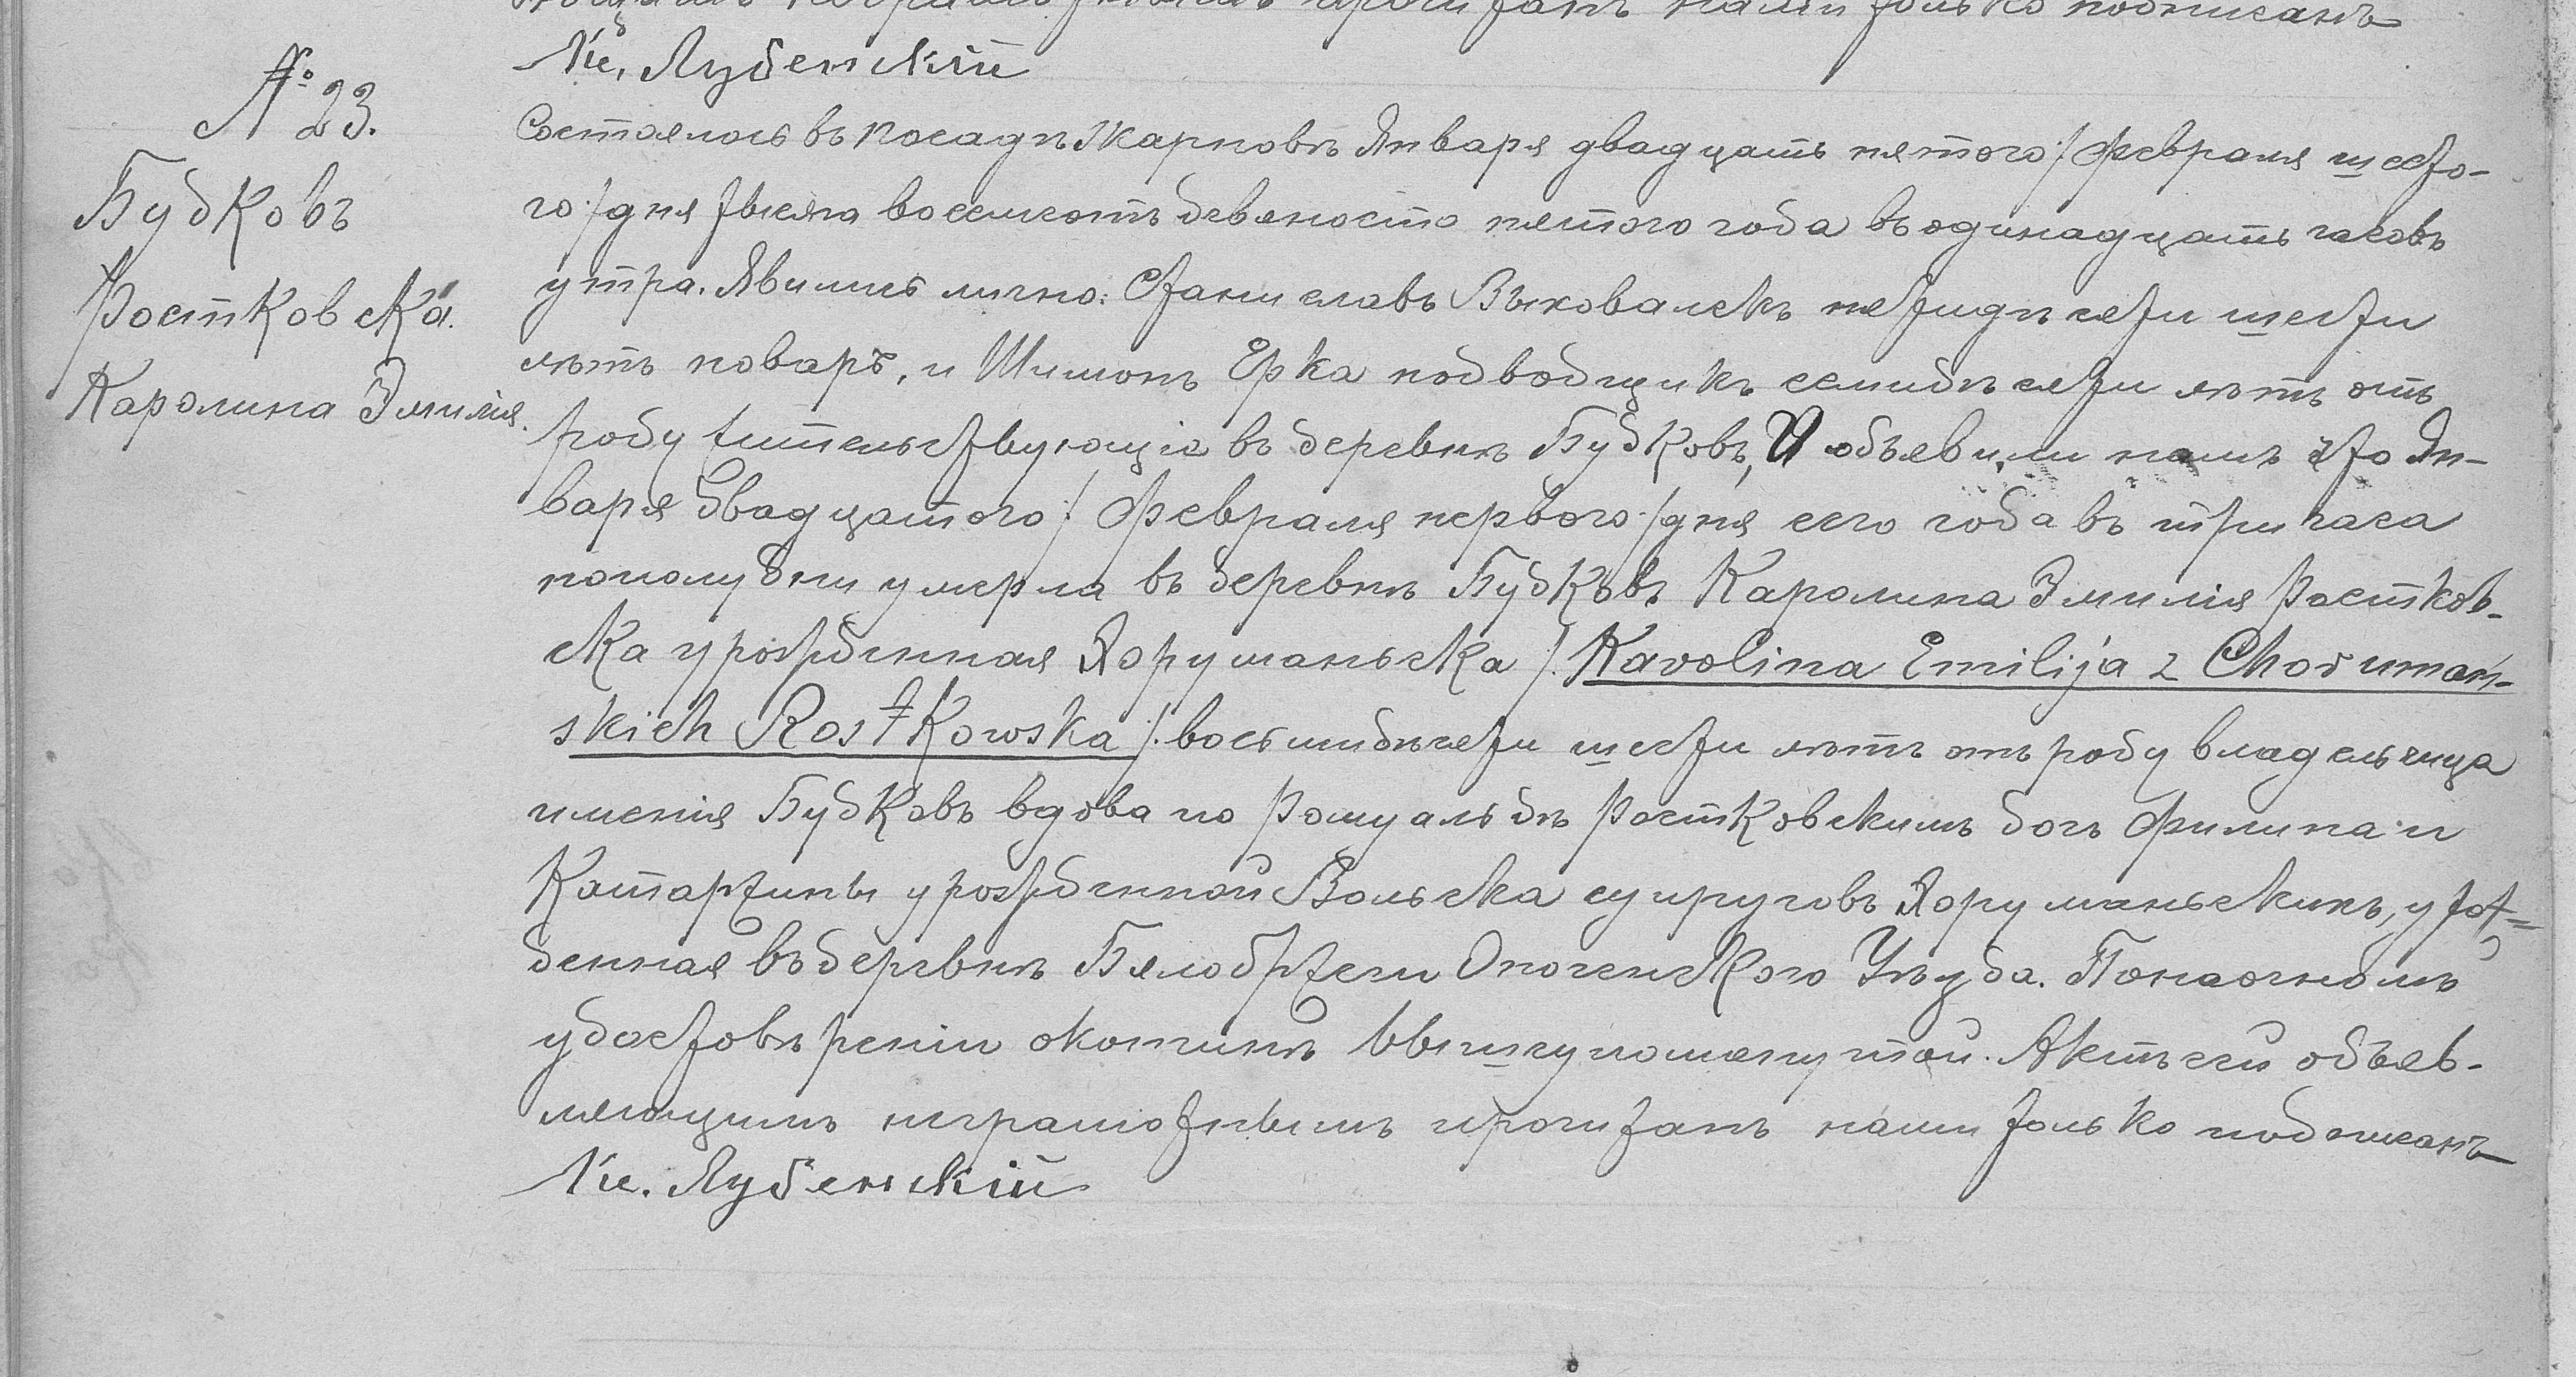 прочитанъ нами только подписанъ
Кс. Лубенскій
№ 23.
Будковъ
Ростковска.
Каролина Эмилія.
Состоялось въ посадѣ Жарновѣ Января двадцать пятого /Февраля шесто-
го:/ дня тысяча восемсотъ девяносто пятого года въ одинадцать часовъ
утра. Явились лично: Станиславъ Выховалекъ пятидѣсяти шести
лѣтъ поваръ, и Шимонъ Ерка подводщикъ семидѣсяти лѣтъ отъ
роду жительствующіе въ деревнѣ Будковъ, И объявили намъ что Ян-
варя двадцатого /: Февраля первого:/ дня сего года въ три часа
пополудни умерла въ деревнѣ Будковъ Каролина Эмилія Ростков-
ска урожденная Хоруманьска /: Karolina Emilija z Choruman-
skich Rostkowska:/ восьмидѣсяти шести лѣтъ отъ роду владельчица
имения Будковъ вдова по Ромуальдѣ Ростковскимъ дочь Филипа и
Катаржины урожденной Вольска супруговъ Хоруманьскихъ, урож=
денная въ деревнѣ Бялобржеги Опоченского Уѣзда. По наочномъ
удостовѣреніи о кончинѣ вышеупомянутой. Актъ сей объяв-
ляющимъ неграмотнымъ прочитанъ нами только подписанъ
Кс. Лубенскій